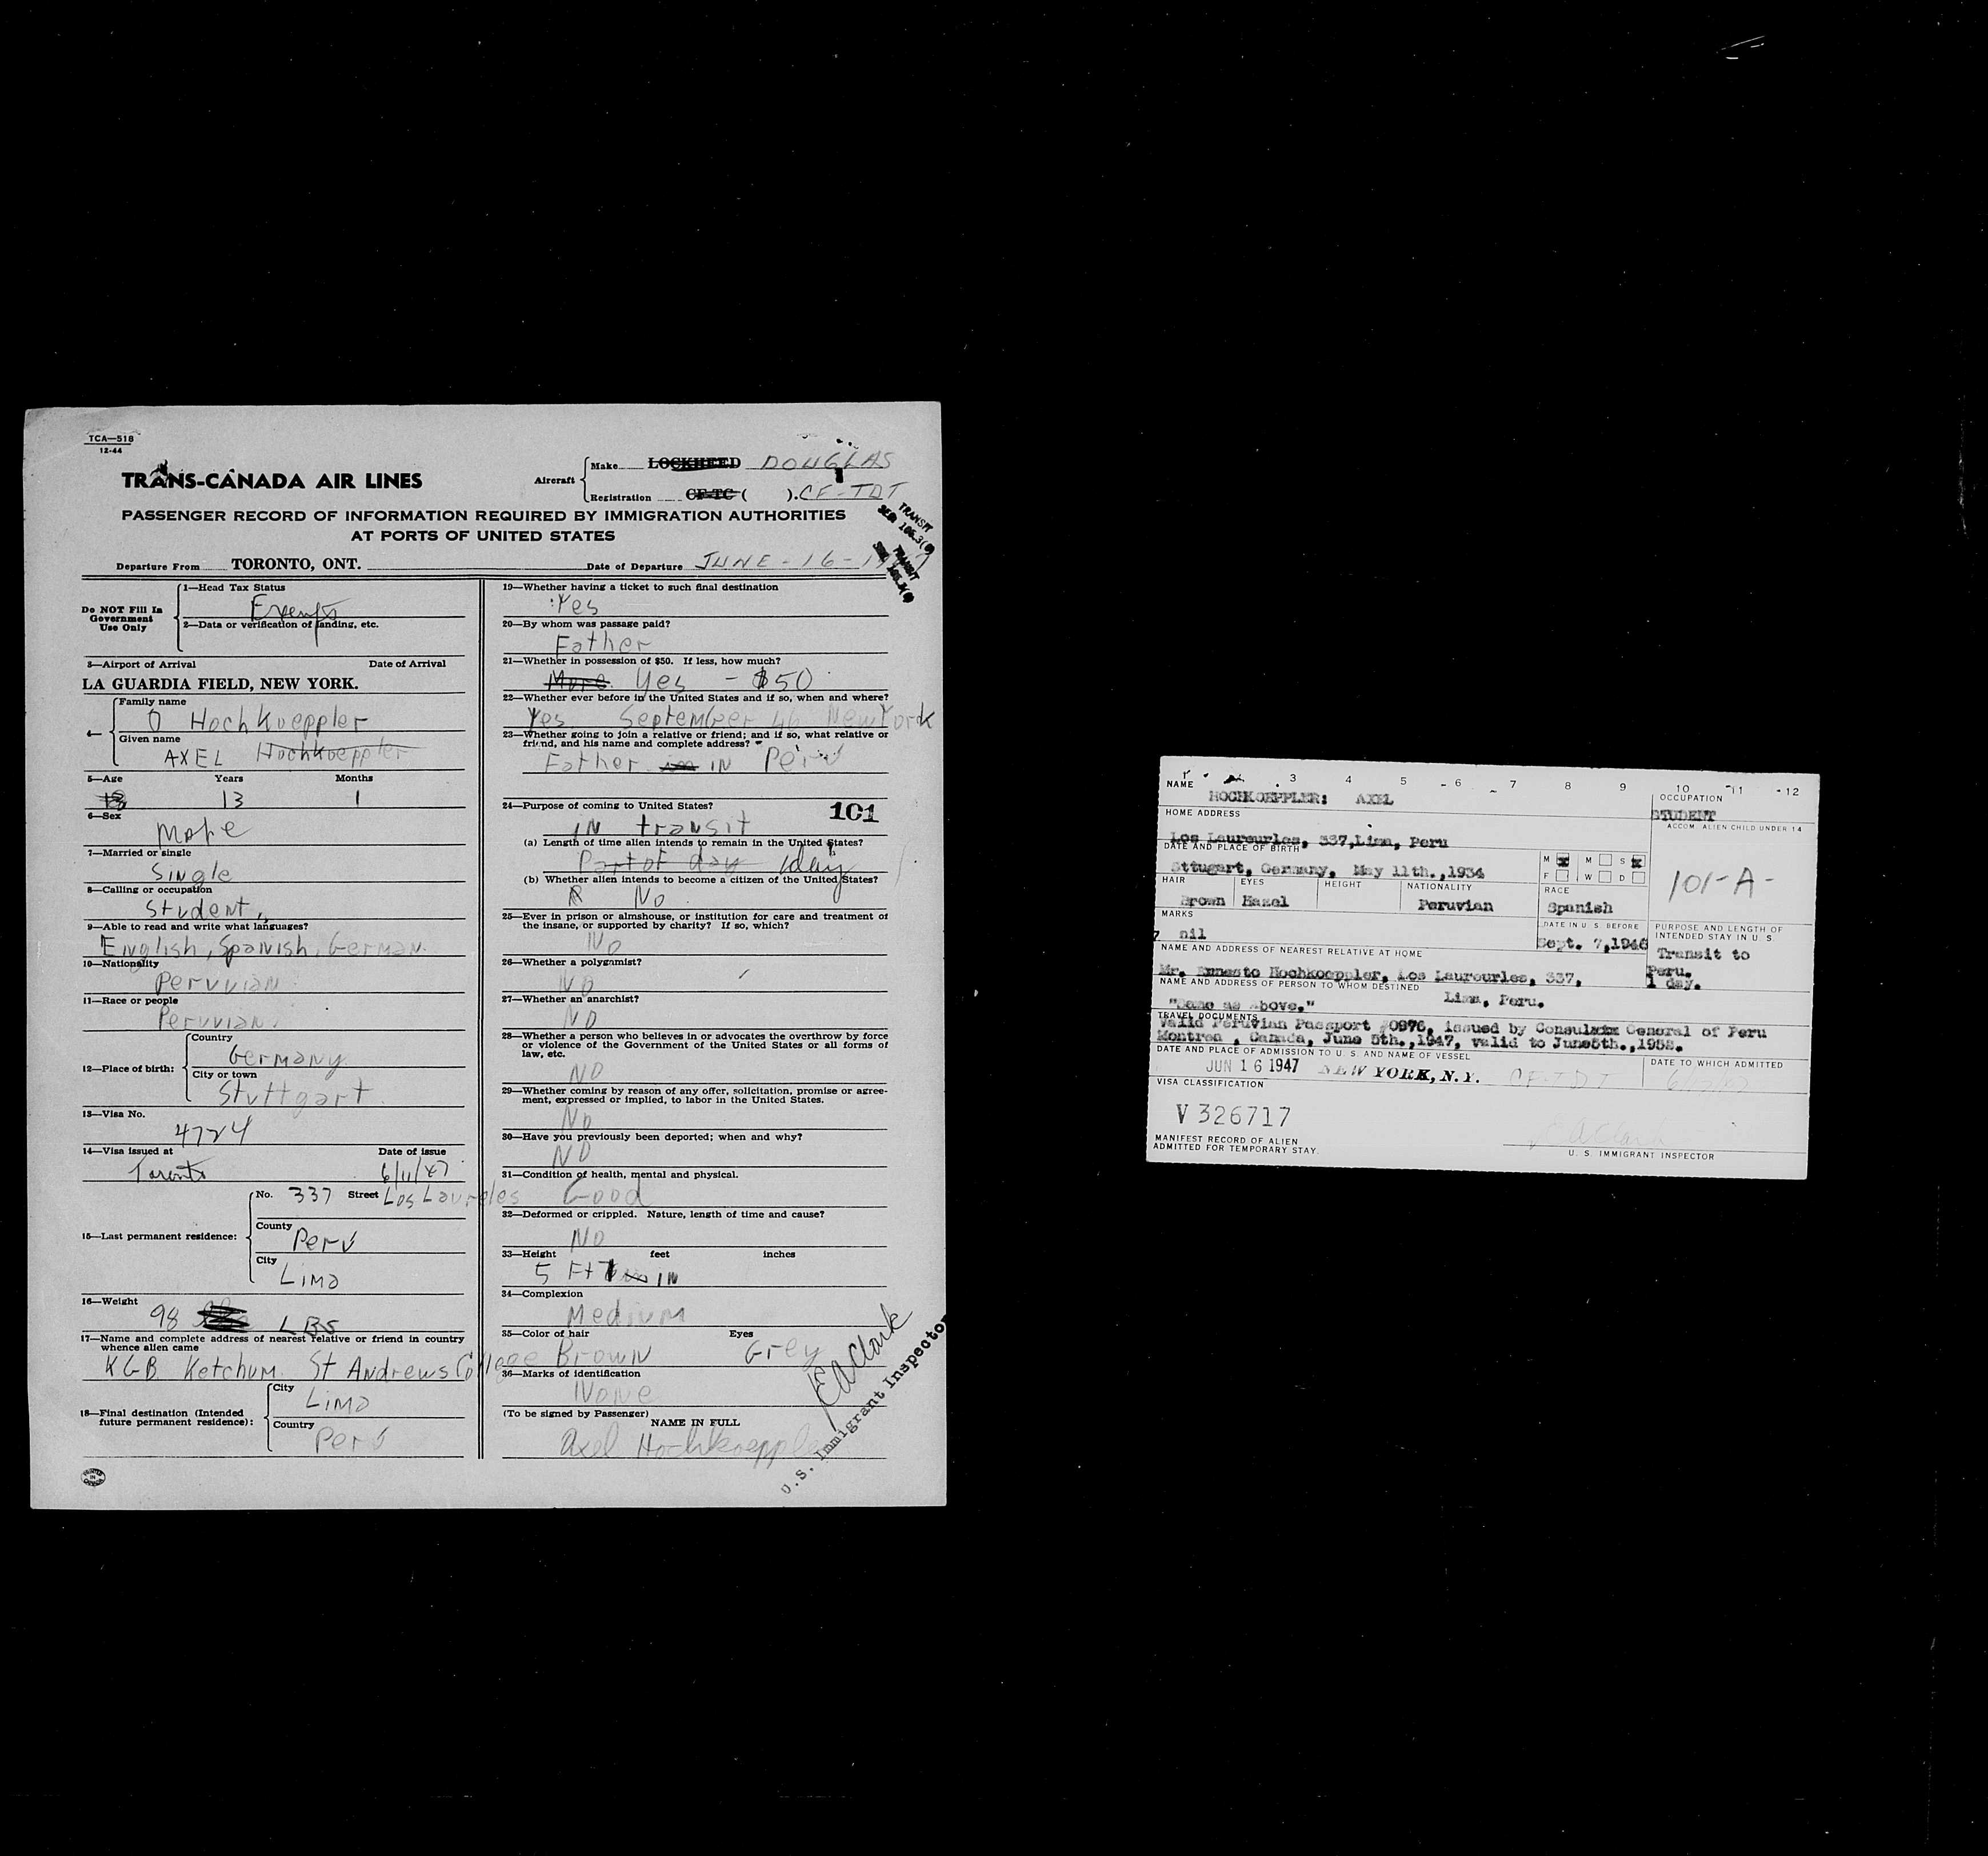 TCA—518
12-44
TRANS-CANADA AIR LINES
Aircraft
Make LOCKHEED DOUGLAS
Registration CF-TC ( ). CF-TDT
PASSENGER RECORD OF INFORMATION REQUIRED BY IMMIGRATION AUTHORITIES
AT PORTS OF UNITED STATES
TRANSIT
TRANSIT
Departure From TORONTO, ONT.
Date of Departure JUNE - 16 -
Do NOT Fill In
Government
Use Only
1—Head Tax Status
Exempt
2—Data or verification of landing, etc.
3—Airport of Arrival Date of Arrival
LA GUARDIA FIELD, NEW YORK.
4—
Family name
Hochkoeppler
Given name
AXEL Hochkoeppler
5—Age Years Months
13 1
6—Sex
Male
7—Married or single
Single
8—Calling or occupation
Student
9—Able to read and write what languages?
English, Spanish, German.
10—Nationality
Peruvian
11—Race or people
Peruvian
12—Place of birth:
Country
Germany
City or town
Stuttgart
13—Visa No.
4724
14—Visa issued at Date of issue
Toronto 6/11/47
15—Last permanent residence:
No. 337 Street Los Laureles
County
Perú
City
Lima
16—Weight
98 LBS
17—Name and complete address of nearest relative or friend in country
whence alien came
KGB Ketchum. St Andrews College
18—Final destination (Intended
future permanent residence):
City
Lima
Country
Perú
PRINTED
IN
CANADA
19—Whether having a ticket to such final destination
Yes
20—By whom was passage paid?
Father
21—Whether in possession of $50. If less, how much?
More Yes - $50
22—Whether ever before in the United States and if so, when and where?
Yes September 46 New York
23—Whether going to join a relative or friend; and if so, what relative or
friend, and his name and complete address?
Father IN Perú
24—Purpose of coming to United States? 101
IN transit
(a) Length of time alien intends to remain in the United States?
Part of day 1 day
(b) Whether alien intends to become a citizen of the United States?
No
25—Ever in prison or almshouse, or institution for care and treatment of
the insane, or supported by charity? If so, which?
No
26—Whether a polygamist?
NO
27—Whether an anarchist?
NO
28—Whether a person who believes in or advocates the overthrow by force
or violence of the Government of the United States or all forms of
law, etc.
NO
29—Whether coming by reason of any offer, solicitation, promise or agree-
ment, expressed or implied, to labor in the United States.
No
30—Have you previously been deported; when and why?
NO
31—Condition of health, mental and physical.
Good
32—Deformed or crippled. Nature, length of time and cause?
NO
33—Height feet inches
5 Ft IN
34—Complexion
Medium
35—Color of hair Eyes
Brown Grey
36—Marks of identification
None
(To be signed by Passenger)
NAME IN FULL
Axel Hochkoeppler
EAClark
U.S. Immigrant Inspector
3 4 5 6 7 8 9 10 11 12
NAME
HOCHKOEPPLER: AXEL
OCCUPATION
STUDENT
HOME ADDRESS
ACCOM. ALIEN CHILD UNDER 14
Los Laureurles, 337, Lima, Peru
DATE AND PLACE OF BIRTH
Sttugart, Germany, May 11th.,1934
M x M S x
F W D
101-A-
HAIR EYES HEIGHT NATIONALITY RACE
Brown Hazel Peruvian Spanish
MARKS
nil
DATE IN U.S. BEFORE
Sept. 7,1946
PURPOSE AND LENGTH OF
INTENDED STAY IN U. S.
Transit to
Peru.
1 day.
NAME AND ADDRESS OF NEAREST RELATIVE AT HOME
Mr. Ernesto Hochkoeppler, Los Laureurles, 337,
Lima, Peru.
NAME AND ADDRESS OF PERSON TO WHOM DESTINED
"Same as Above."
TRAVEL DOCUMENTS
Valid Peruvian Passport #0976, issued by Consulate General of Peru
Montrea , Canada, June 5th.,1947, valid to June5th.,1952.
DATE AND PLACE OF ADMISSION TO U. S. AND NAME OF VESSEL
DATE TO WHICH ADMITTED
JUN 16 1947 NEW YORK, N.Y. CF-TDT
VISA CLASSIFICATION
V 326717
MANIFEST RECORD OF ALIEN
ADMITTED FOR TEMPORARY STAY.
E A Clark
U. S. IMMIGRANT INSPECTOR